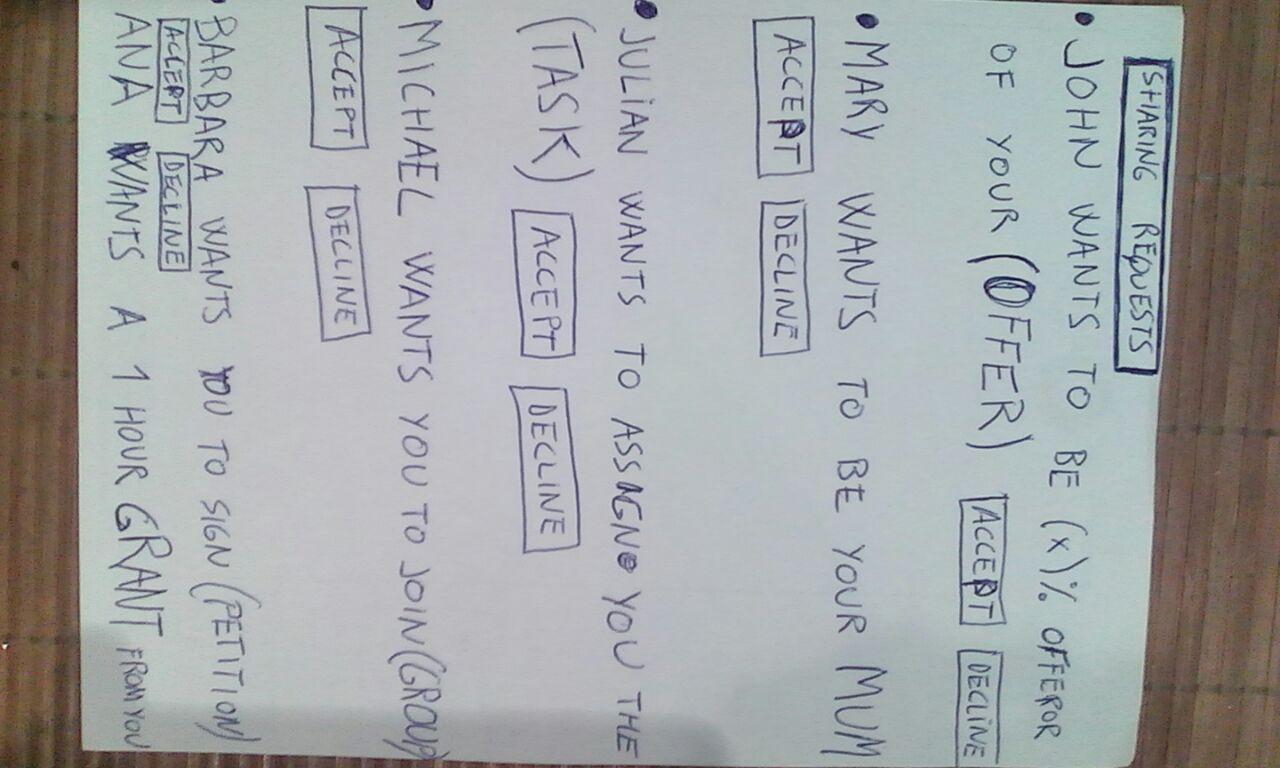 SHARING REQUESTS
• JOHN WANTS TO BE (x)% OFFEROR
OF YOUR (OFFER) ACCEPT DECLINE
• MARY WANTS TO BE YOUR MUM
ACCEPT DECLINE
• JULIAN WANTS TO ASSIGN YOU THE
(TASK) ACCEPT DECLINE
• MICHAEL WANTS YOU TO JOIN (GROUP)
ACCEPT DECLINE
• BARBARA WANTS YOU TO SIGN (PETITION)
ACCEPT DECLINE
ANA WANTS A 1 HOUR GRANT FROM YOU